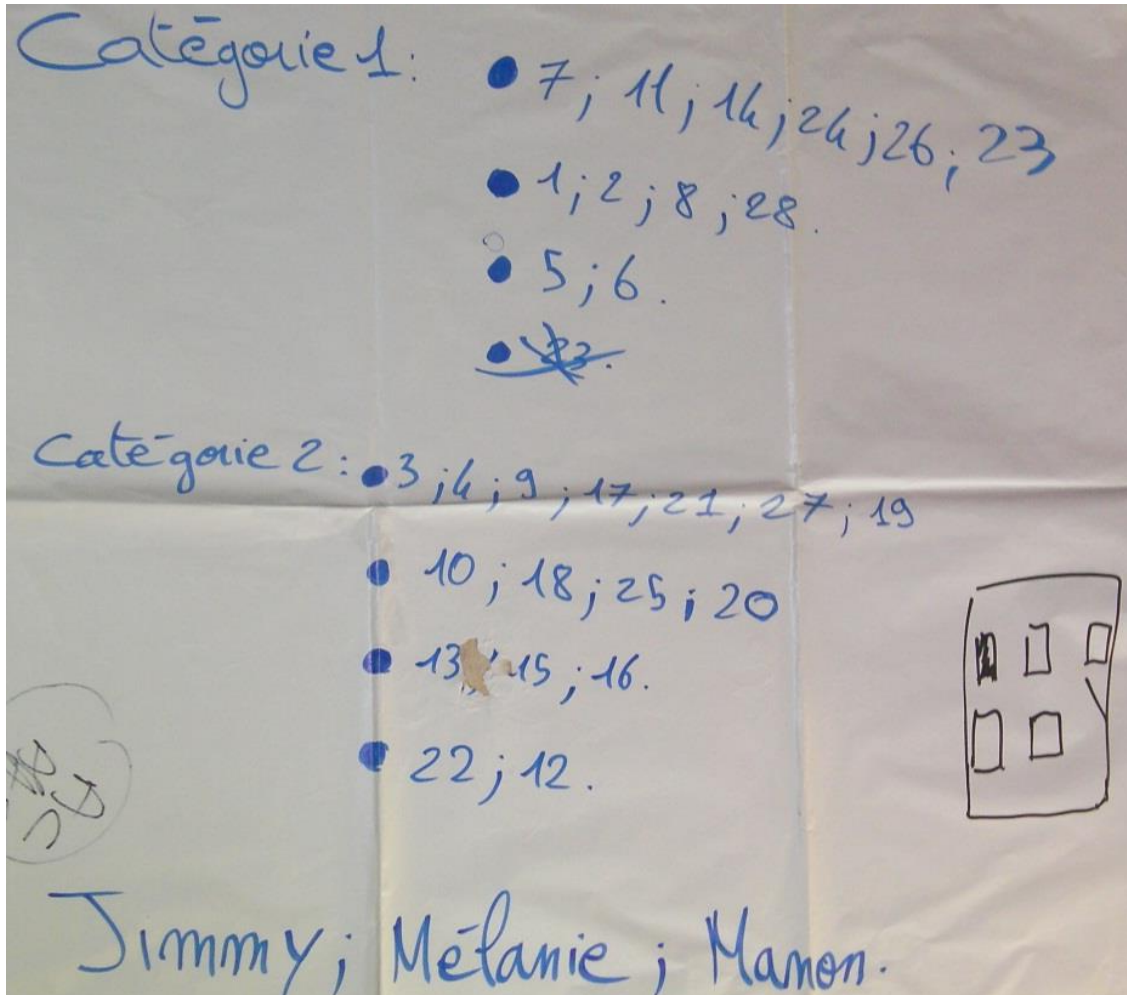 Catégorie 1:
• 7 ; 11 ; 14 ; 24 ; 26 ; 23
• 1 ; 2 ; 8 ; 28.
• 5 ; 6.
• 23.
Catégorie 2 :
• 3 ; 4 ; 9 ; 17 ; 21 ; 27 ; 19
• 10 ; 18 ; 25 ; 20
• 13 ; 15 ; 16.
• 22 ; 12.
Jimmy ; Mélanie ; Manon.